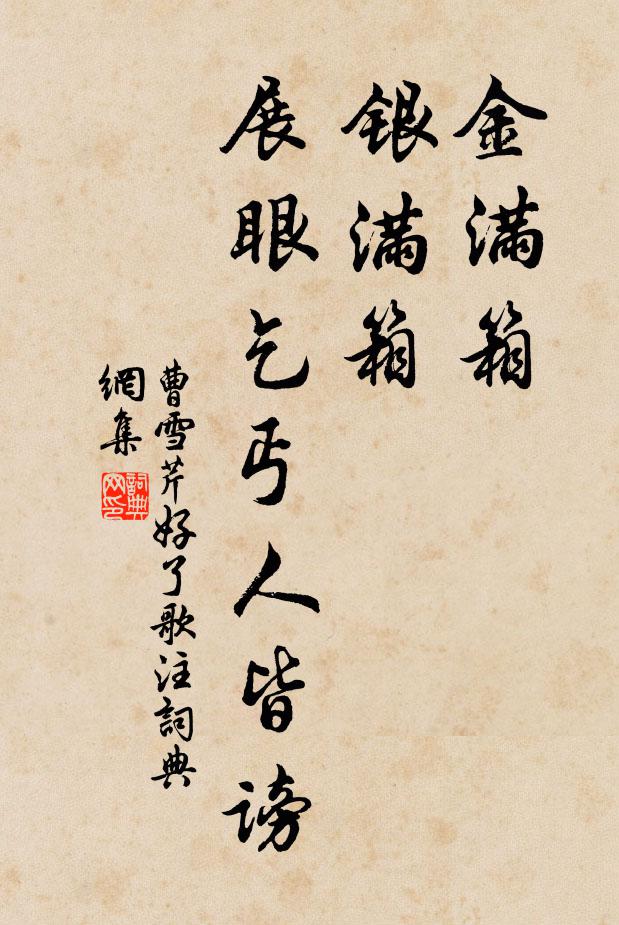 金滿箱
銀滿箱
展眼乞丐人皆謗
曹雪芹好了歌注詞典
網集
詞典
网印